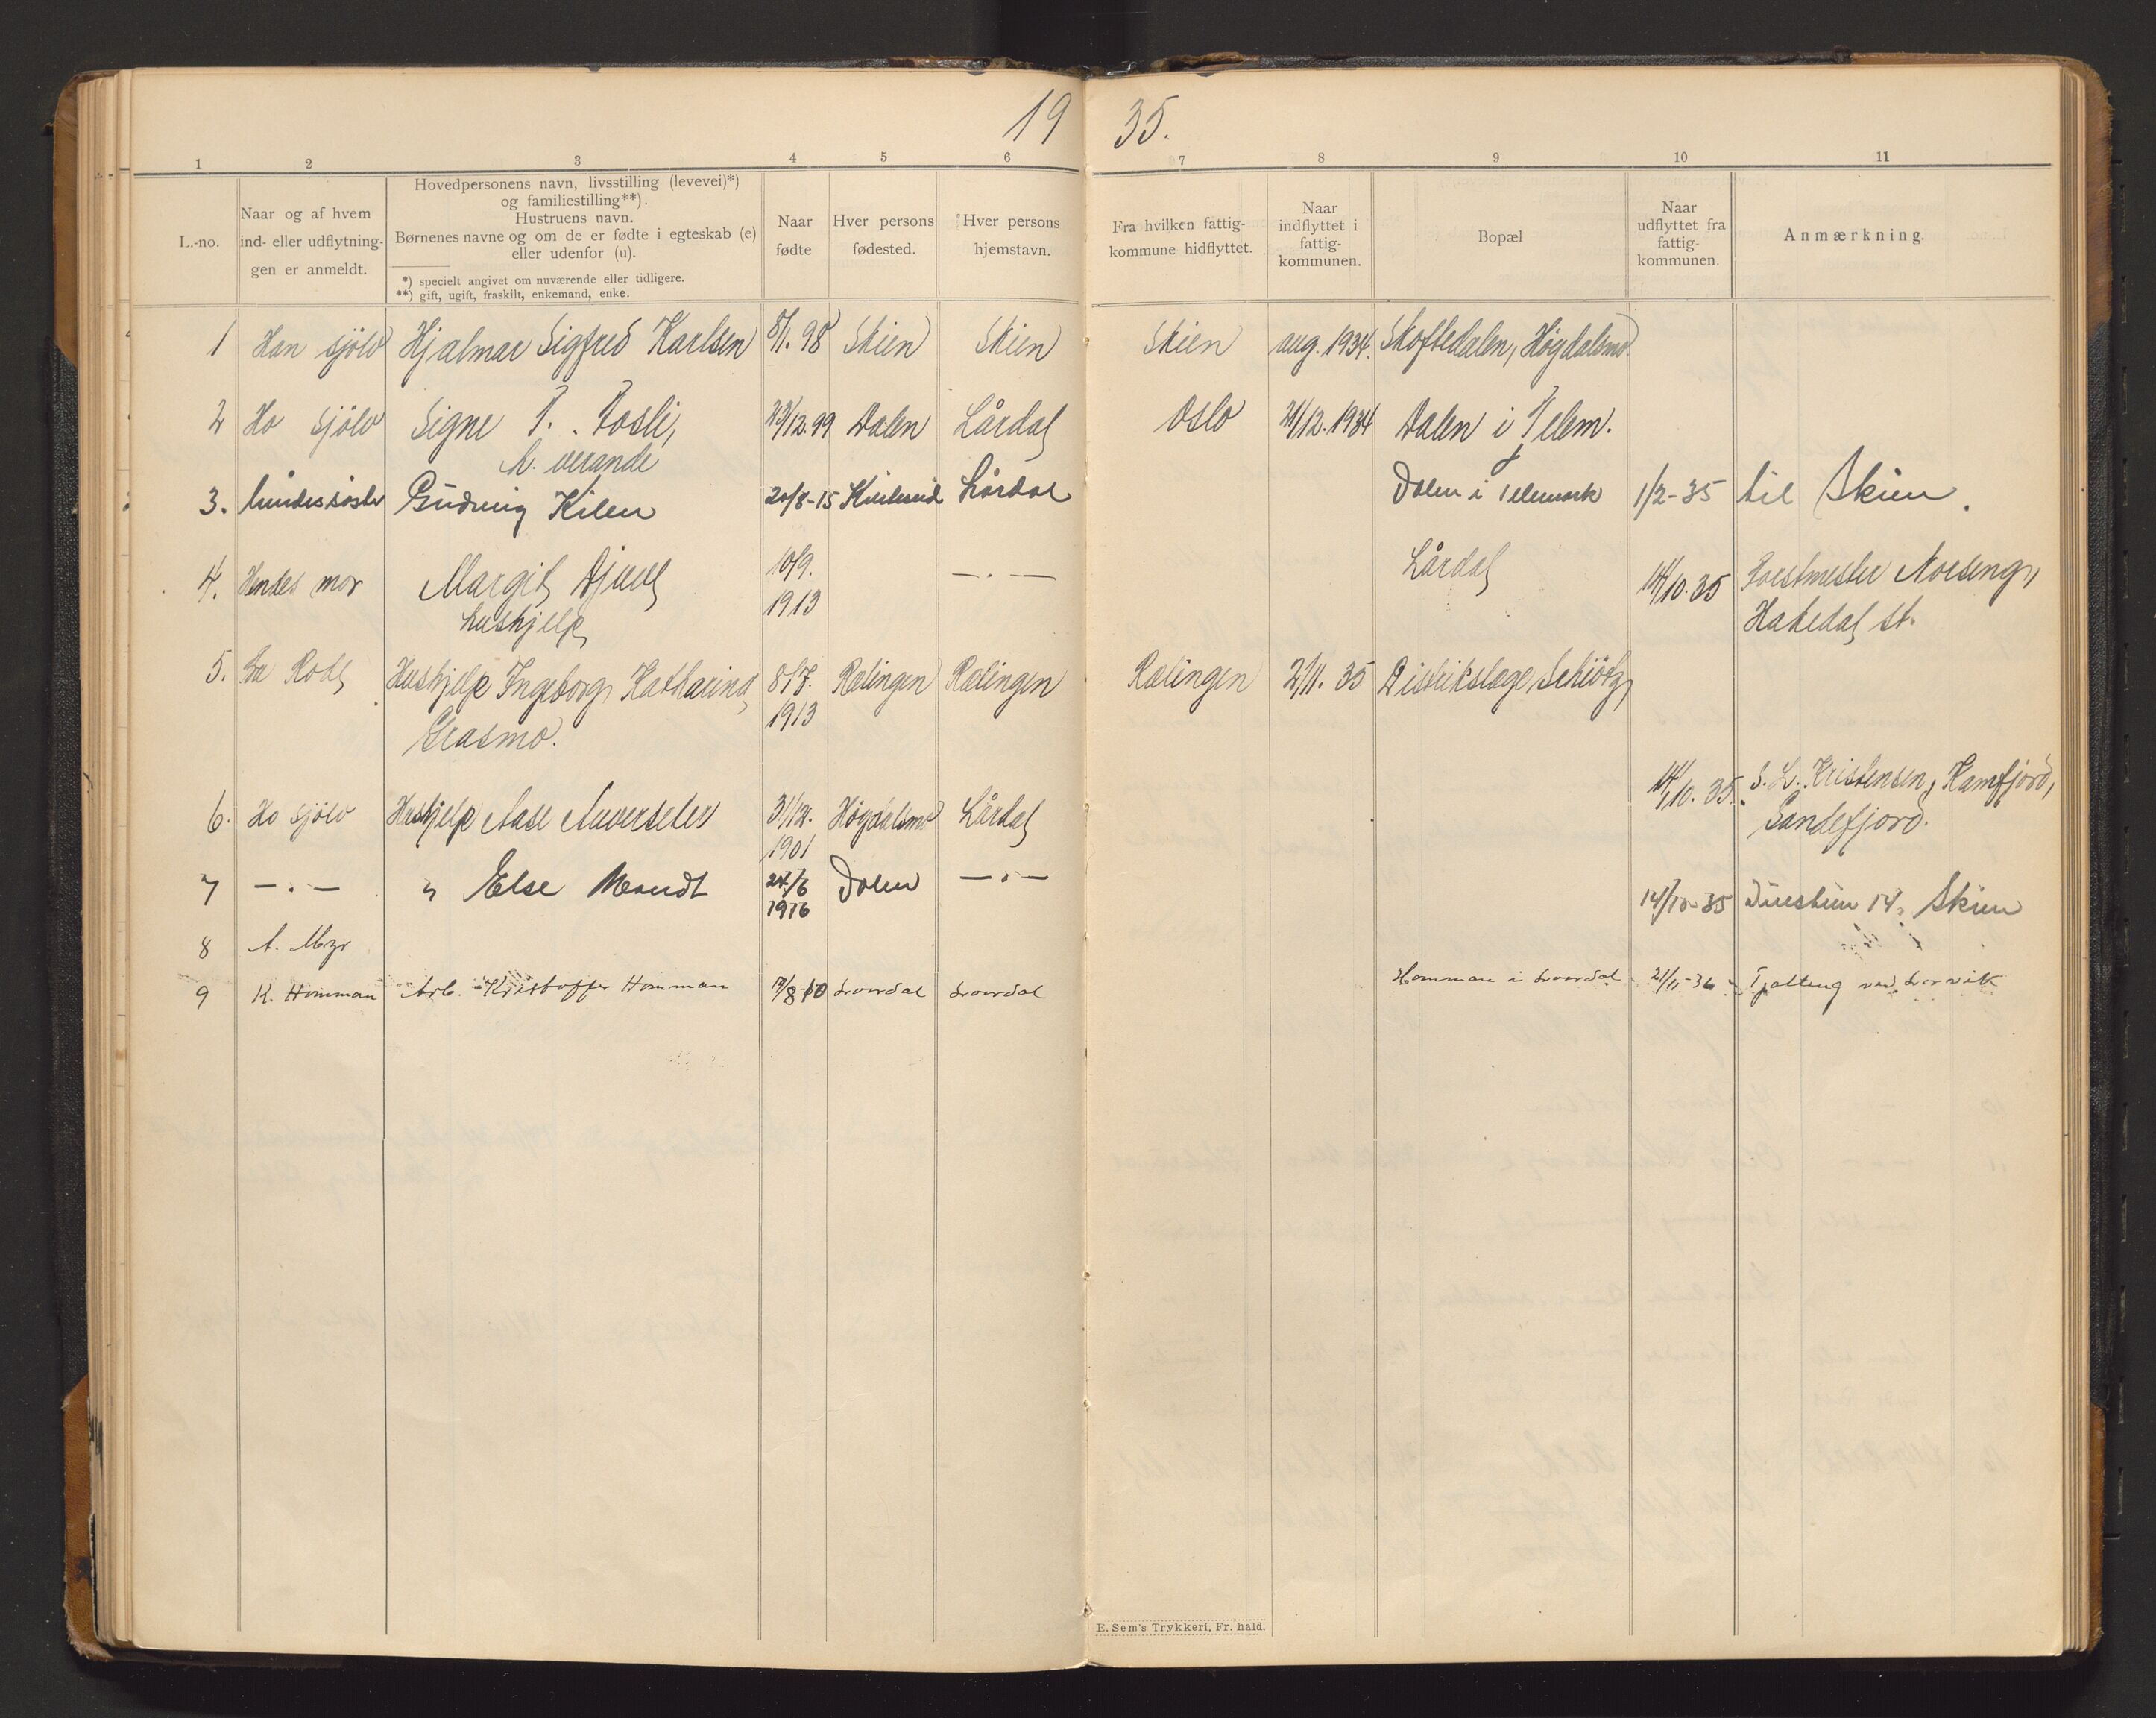 19 35.
1 2 3 4 5 6 7 8 9 10 11
L.-no.
Naar og af hvem
ind- eller udflytnin-
gen er anmeldt.
Hovedpersonens navn, livsstilling (levevei)*)
og familiestilling**).
Hustruens navn.
Børnenes navne og om de er fødte i egteskab (e)
eller udenfor (u).
*) specielt angivet om nuværende eller tidligere.
**) gift, ugift, fraskilt, enkemand, enke.
Naar
fødte
Hver persons
fødested.
Hver persons
hjemstavn.
Fra hvilken fattig-
kommune hidflyttet.
Naar
indflyttet i
fattig-
kommunen.
Bopæl
Naar
udflyttet fra
fattig-
kommunen.
Anmærkning.
1 Han sjölv Hjalmar Sigfred Karlsen 8/1. 98 Skien Skien Skien aug. 1934. Skoftedalen, Høgdalsmo
2 Ho sjölv Signe T. Tosli, 23/12.99 Dalen Lårdal Oslo 21/12.1934 Dalen i Telem.
h. verande
3. hindes søster Gudveig Kilen 20/8-15 Kviteseid Lårdal Dalen i Telemark 1/2-35 til Skien.
4. Hendes mor Margit Djuve 10/9. — . — Lårdal 14/10.35 Forstmester Norseng,
hushjelp 1913 Hakedal st.
5. Hushjelp Ingeborg Katharina 8/7. Rælingen Rælingen Rælingen 2/11. 35 Distrikslæge Schiötz
Grasmo. 1913
6. Ho sjölv Hushjelp Aase Auverseter 31/12. Høgdalsmo Lårdal 14/10. 35. S. L. Kristensen, Kamfjord,
1901 Sandefjord.
7 — . — " Else Mandt 24/6 Dalen — . — 14/10-35 14, Skien
1916
8 A. Myr
9 K. Homman Arb. Kristoffer Homman 17/8-10 Laardal Laardal Homman i Laardal 21/11-36 Tjølling ved Larvik
E. Sem's Trykkeri, Fr. hald.